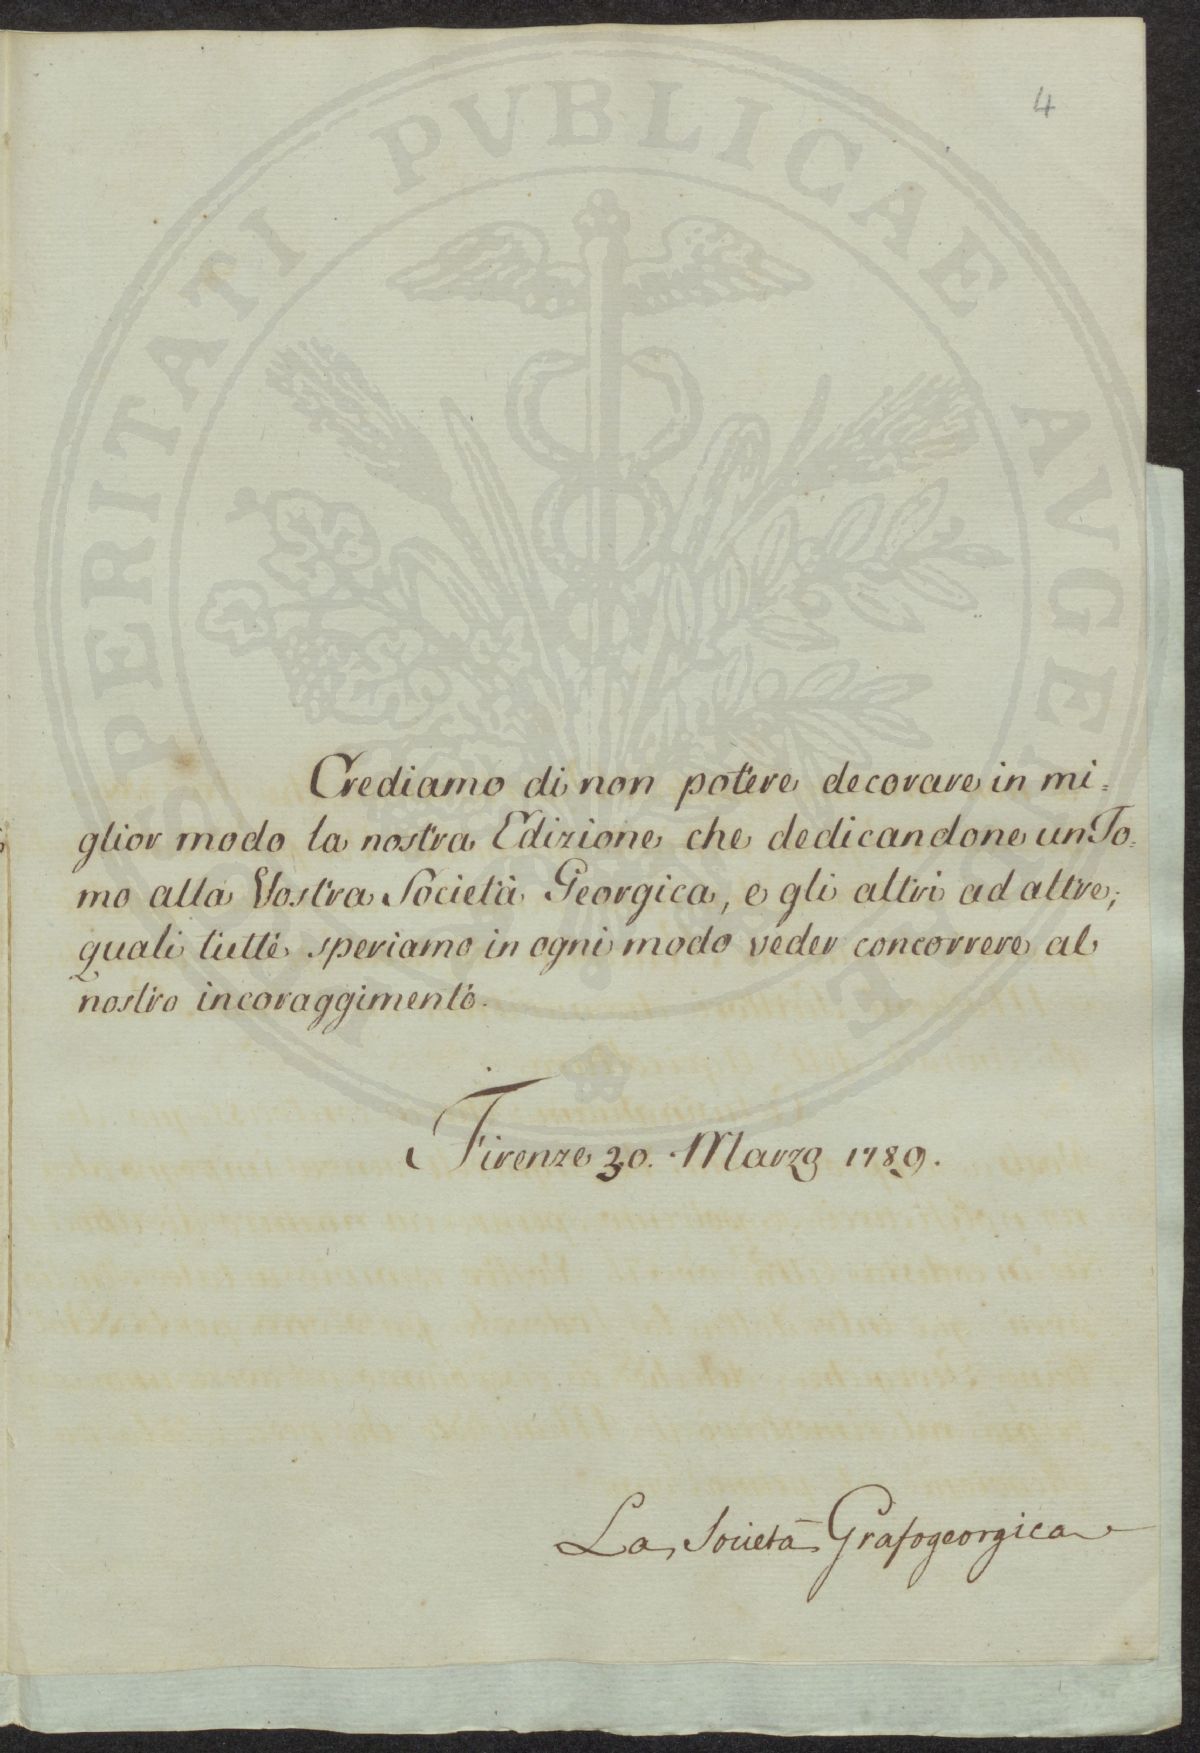 4
PROSPERITATI PVBLICAE AVGENDAE
Crediamo di non potere decorare in mi=
glior modo la nostra Edizione che dedicandone un To=
mo alla Vostra Società Georgica, e gli altri ad altre,
quali tutte speriamo in ogni modo veder concorrere al
nostro incoraggimento.
Firenze 30. Marzo 1789.
La Società Grafogeorgica